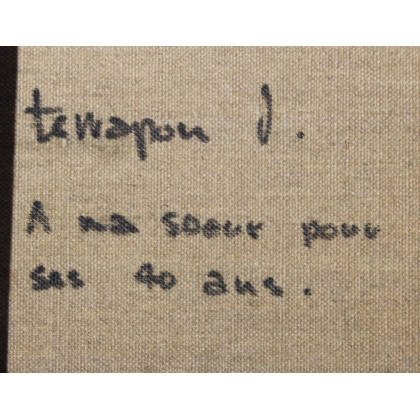 terrapon J.
A ma soeur pour
ses 40 ans.